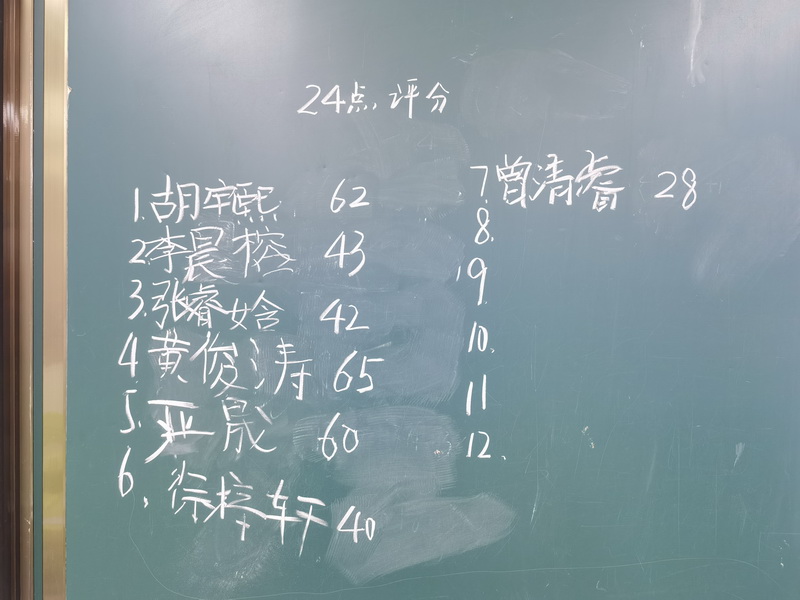 24点评分
1.胡宇熙 62
2.李晨榕 43
3.张睿晗 42
4.黄俊涛 65
5.亚晟 60
6.徐梓轩 40
7.曾清睿 28
8.
9.
10.
11
12.